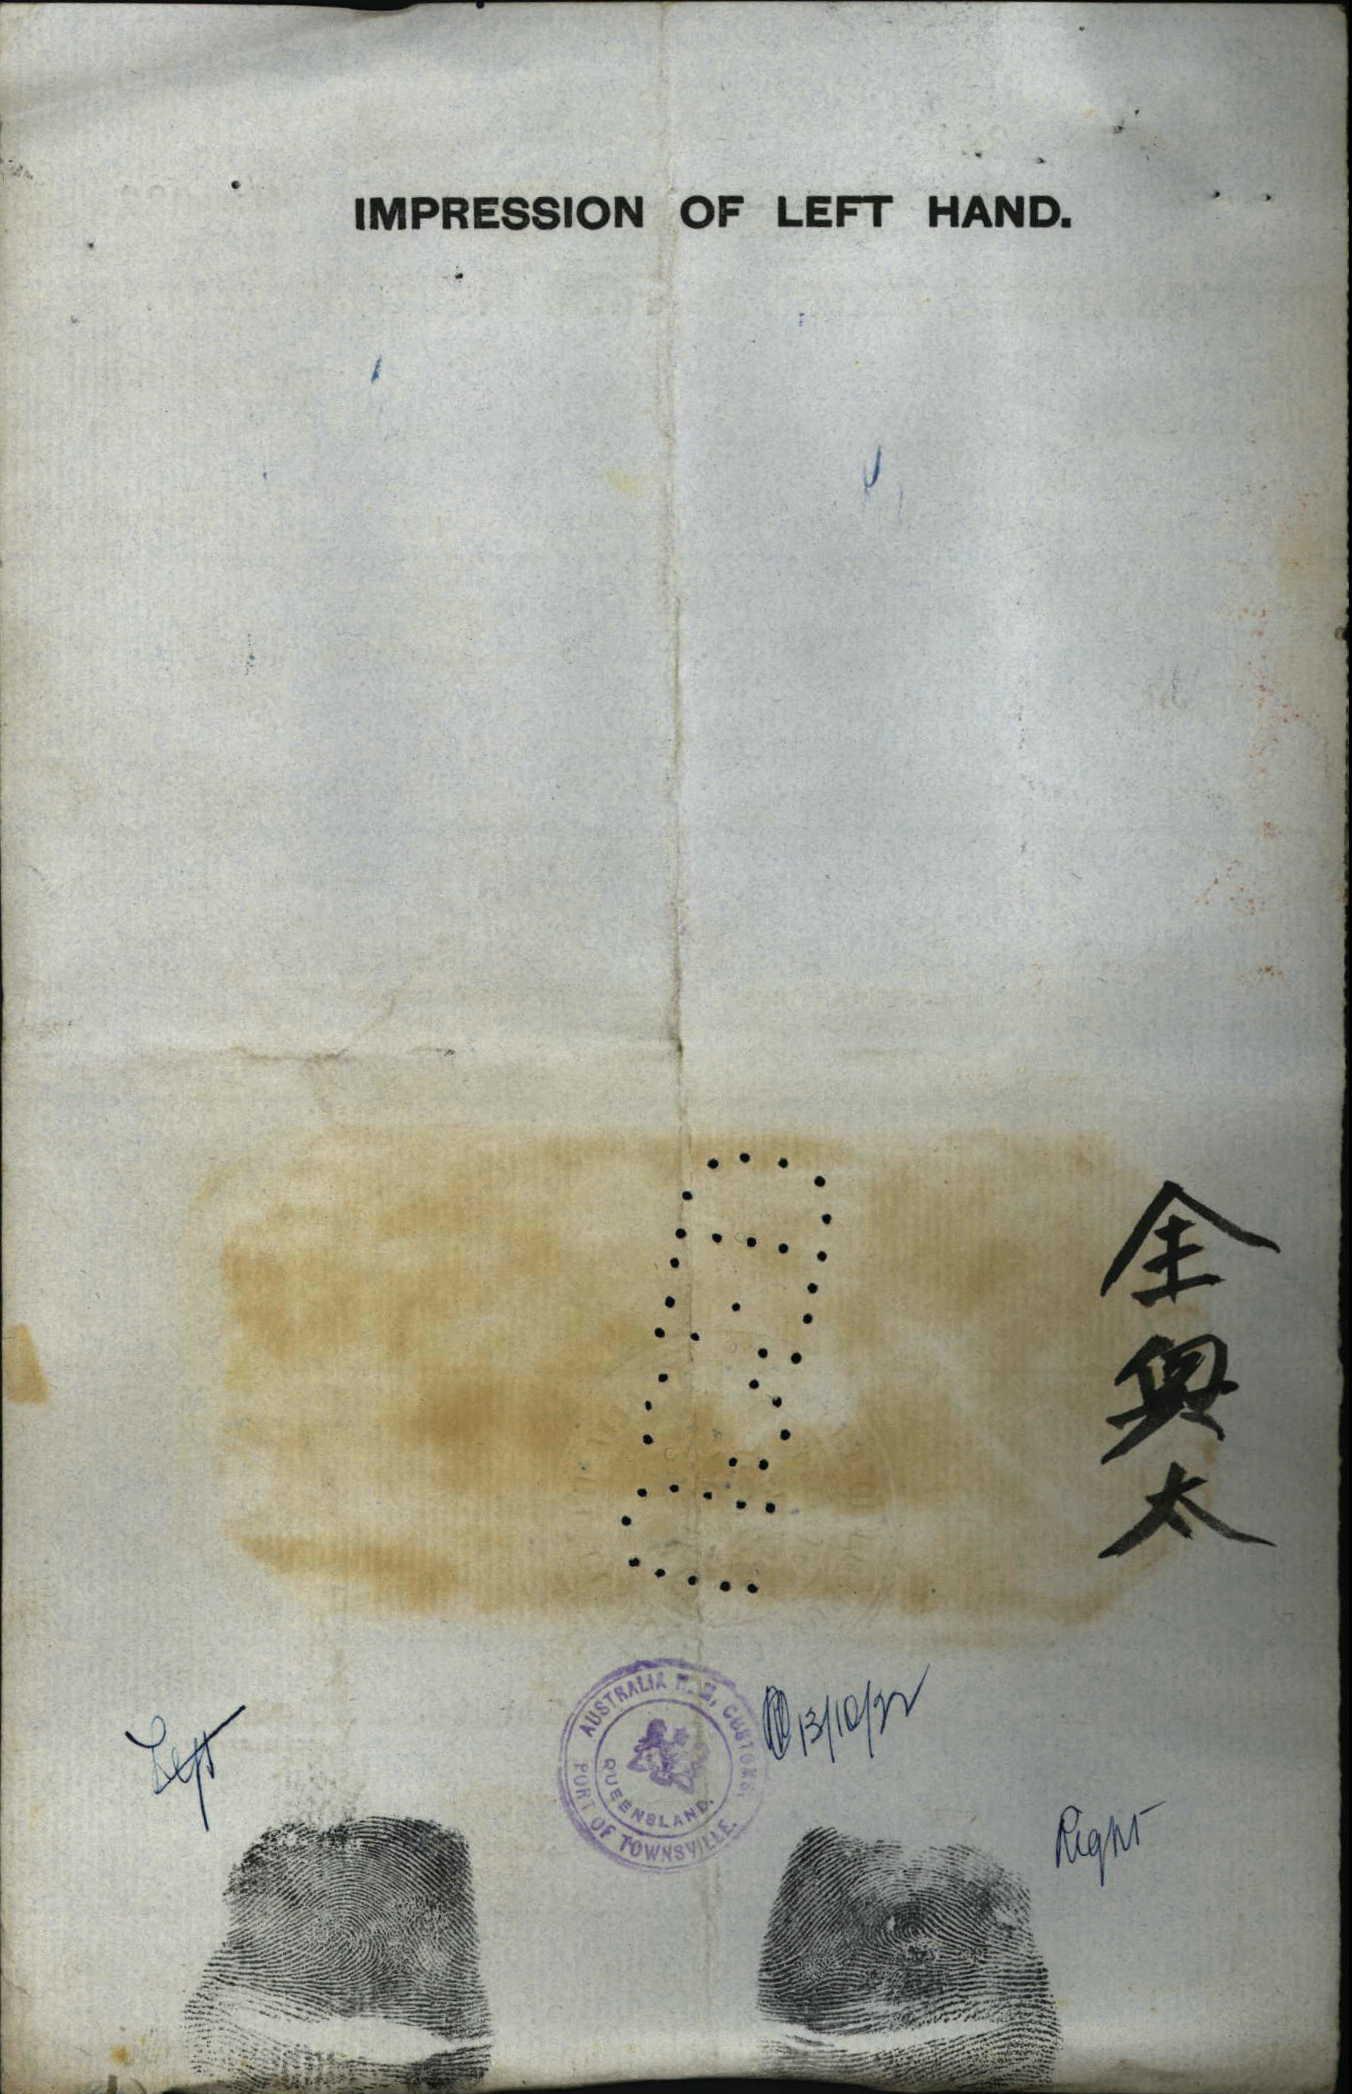 IMPRESSION OF LEFT HAND.
金
興
太
Left
AUSTRALIA H.M. CUSTOMS.
PORT OF TOWNSVILLE.
QUEENSLAND.
13/10/22
Right